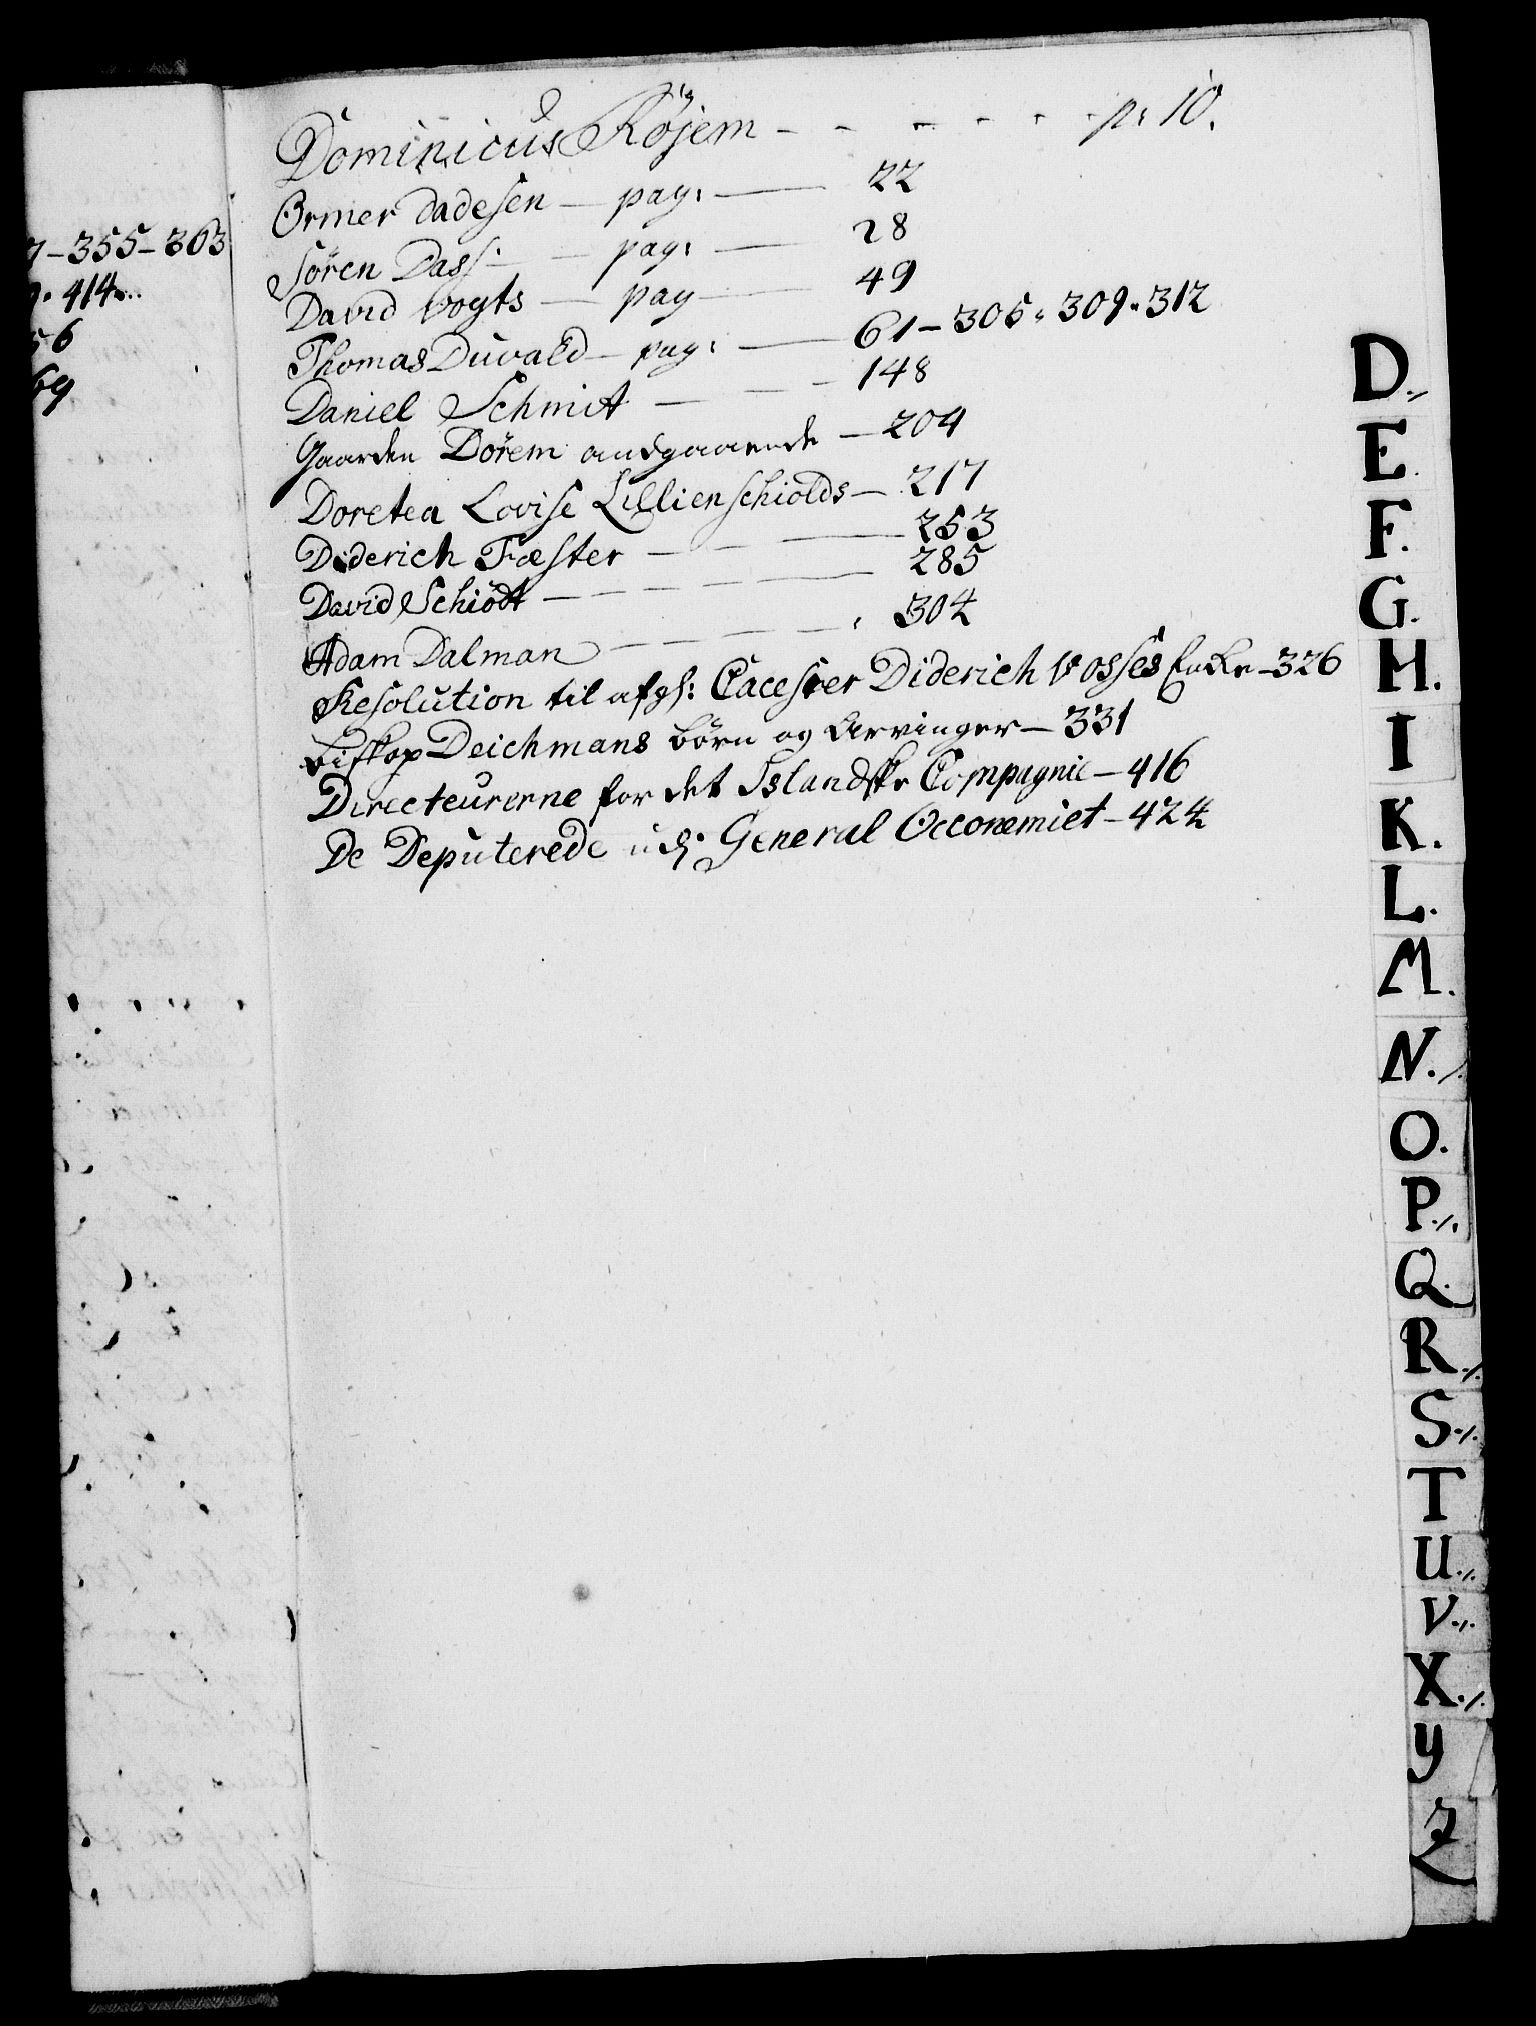 Dominicus Röjem - - - - - - p: 10.
Ormer Dadesen — pag: — 22
Sören Dass: — pag: — 28
David Vogts — pag — 49
Thomas Duvald — pag: — 61 - 305. 309. 312
Daniel Schmit — — — 148
Gaarden Dörem andgaaende — 204
Doretea Lovise Lillienschiolds — 217
Diderich Fæster — — — 253
David Schiödt — — — 285
Adam Dalman — — — 304
Resolution til afg: Diderich Vosses Enke - 326
Biskop Deichmans börn og Arvinger — 331
Directeurerne for det Islandske Compagnie — 416
De Deputerede General Oeconomiet - 424
7 - 355 - 363
9. 414
56
69
D.
E.
F.
G.
H.
I
K.
L.
M.
N.
O.
P.
Q.
R.
S.
T
U.
V.
X.
Y
Z